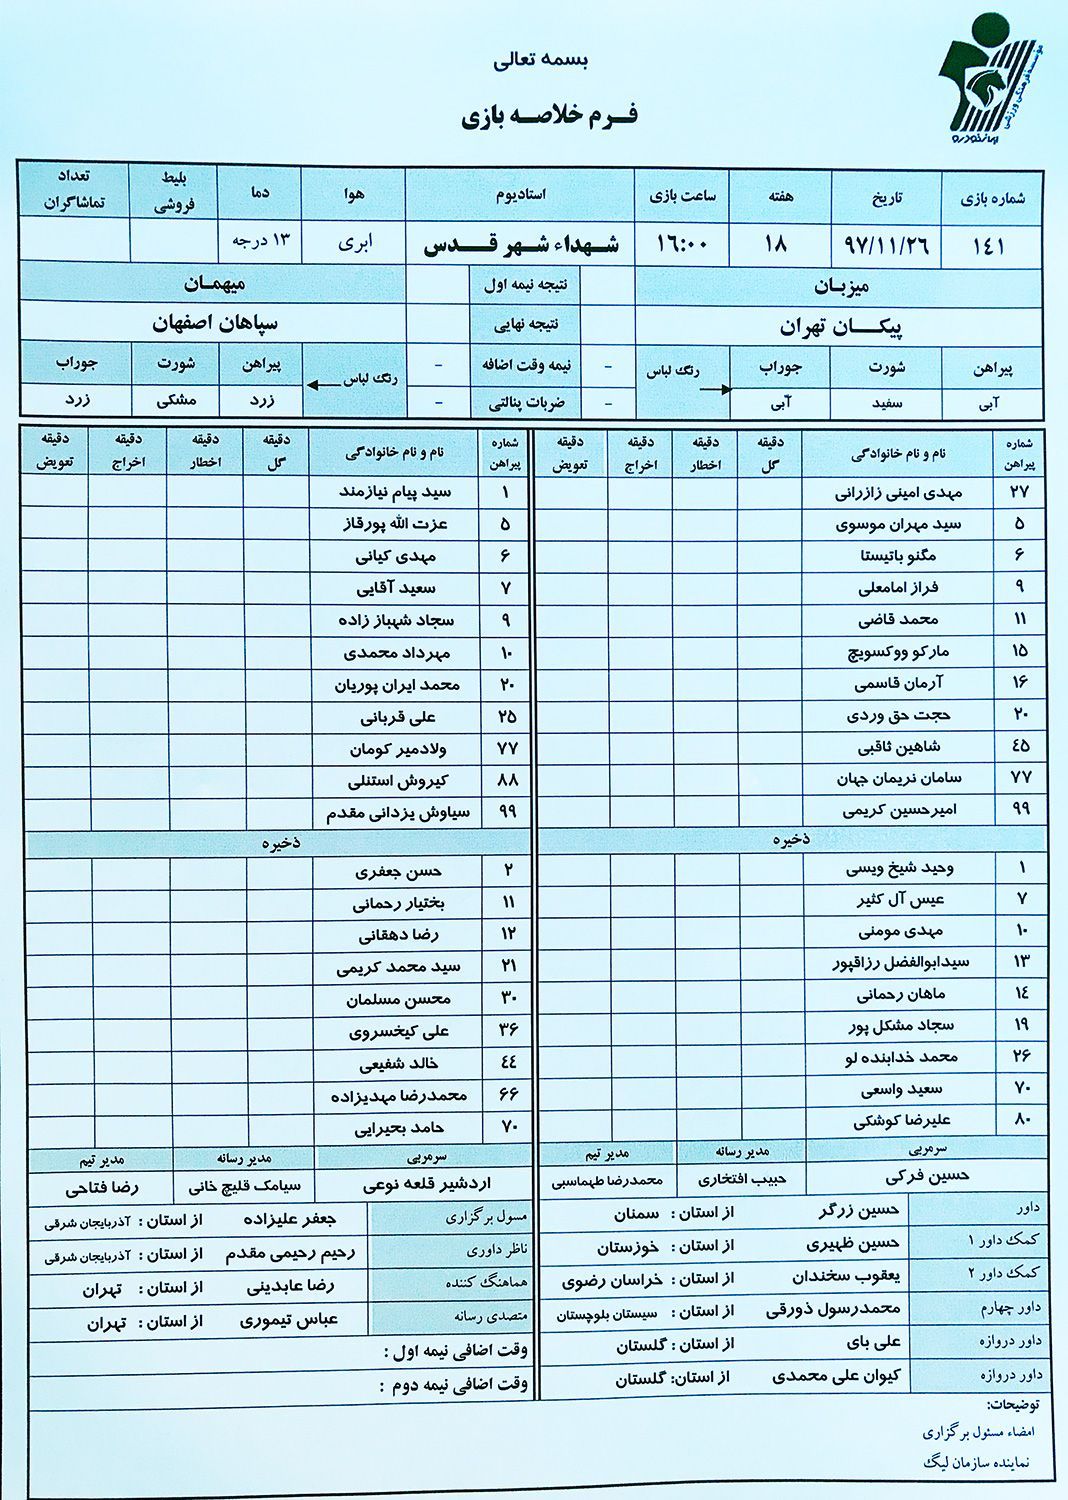 بسمه تعالی
فرم خلاصه بازی
موسسه فرهنگی ورزشی
ایران‌خودرو
شماره بازی تاریخ هفته ساعت بازی استادیوم هوا دما بلیط فروشی تعداد تماشاگران
۱٤۱ ۹۷/۱۱/۲۶ ۱۸ ۱۶:۰۰ شهداء شهر قدس ابری ۱۳ درجه
میزبان نتیجه نیمه اول میهمان
پیکان تهران نتیجه نهایی سپاهان اصفهان
پیراهن شورت جوراب رنگ لباس - نیمه وقت اضافه - رنگ لباس پیراهن شورت جوراب
آبی سفید آبی - ضربات پنالتی - زرد مشکی زرد
شماره پیراهن نام و نام خانوادگی دقیقه گل دقیقه اخطار دقیقه اخراج دقیقه تعویض شماره پیراهن نام و نام خانوادگی دقیقه گل دقیقه اخطار دقیقه اخراج دقیقه تعویض
۲۷ مهدی امینی زازرانی ۱ سید پیام نیازمند
۵ سید مهران موسوی ۵ عزت الله پورقاز
۶ مگنو باتیستا ۶ مهدی کیانی
۹ فراز امامعلی ۷ سعید آقایی
۱۱ محمد قاضی ۹ سجاد شهباز زاده
۱۵ مارکو ووکسویچ ۱۰ مهرداد محمدی
۱۶ آرمان قاسمی ۲۰ محمد ایران پوریان
۲۰ حجت حق وردی ۲۵ علی قربانی
٤۵ شاهین ثاقبی ۷۷ ولادمیر کومان
۷۷ سامان نریمان جهان ۸۸ کیروش استنلی
۹۹ امیرحسین کریمی ۹۹ سیاوش یزدانی مقدم
ذخیره ذخیره
۱ وحید شیخ ویسی ۲ حسن جعفری
۷ عیس آل کثیر ۱۱ بختیار رحمانی
۱۰ مهدی مومنی ۱۲ رضا دهقانی
۱۳ سیدابوالفضل رزاقپور ۲۱ سید محمد کریمی
۱٤ ماهان رحمانی ۳۰ محسن مسلمان
۱۹ سجاد مشکل پور ۳۶ علی کیخسروی
۲۶ محمد خدابنده لو ٤٤ خالد شفیعی
۷۰ سعید واسعی ۶۶ محمدرضا مهدیزاده
۸۰ علیرضا کوشکی ۷۰ حامد بحیرایی
سرمربی مدیر رسانه مدیر تیم سرمربی مدیر رسانه مدیر تیم
حسین فرکی حبیب افتخاری محمدرضا طهماسبی اردشیر قلعه نوعی سیامک قلیچ خانی رضا فتاحی
داور حسین زرگر از استان : سمنان مسول برگزاری جعفر علیزاده از استان : آذربایجان شرقی
کمک داور ۱ حسین ظهیری از استان : خوزستان ناظر داوری رحیم رحیمی مقدم از استان : آذربایجان شرقی
کمک داور ۲ یعقوب سخندان از استان : خراسان رضوی هماهنگ کننده رضا عابدینی از استان : تهران
داور چهارم محمدرسول ذورقی از استان : سیستان بلوچستان متصدی رسانه عباس تیموری از استان : تهران
داور دروازه علی بای از استان : گلستان وقت اضافی نیمه اول :
داور دروازه کیوان علی محمدی از استان: گلستان وقت اضافی نیمه دوم :
توضیحات:
امضاء مسئول برگزاری
نماینده سازمان لیگ